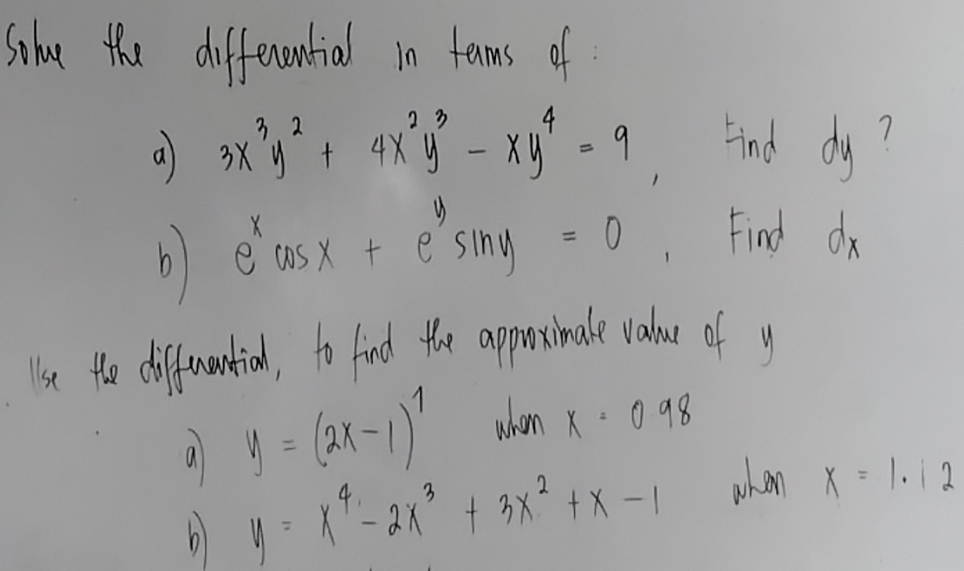 Solve the differential in terms of :
a) 3x³y² + 4x²y³ - xy⁴ = 9, Find dy ?
b) eˣ cos x + eʸ sin y = 0, Find dx
Use the differential, to find the approximate value of y
a) y = (2x-1)⁷ when x = 0.98
b) y = x⁴ - 2x³ + 3x² + x - 1 when x = 1.12